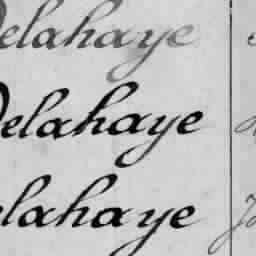 Delahaye
Delahaye
elahaye